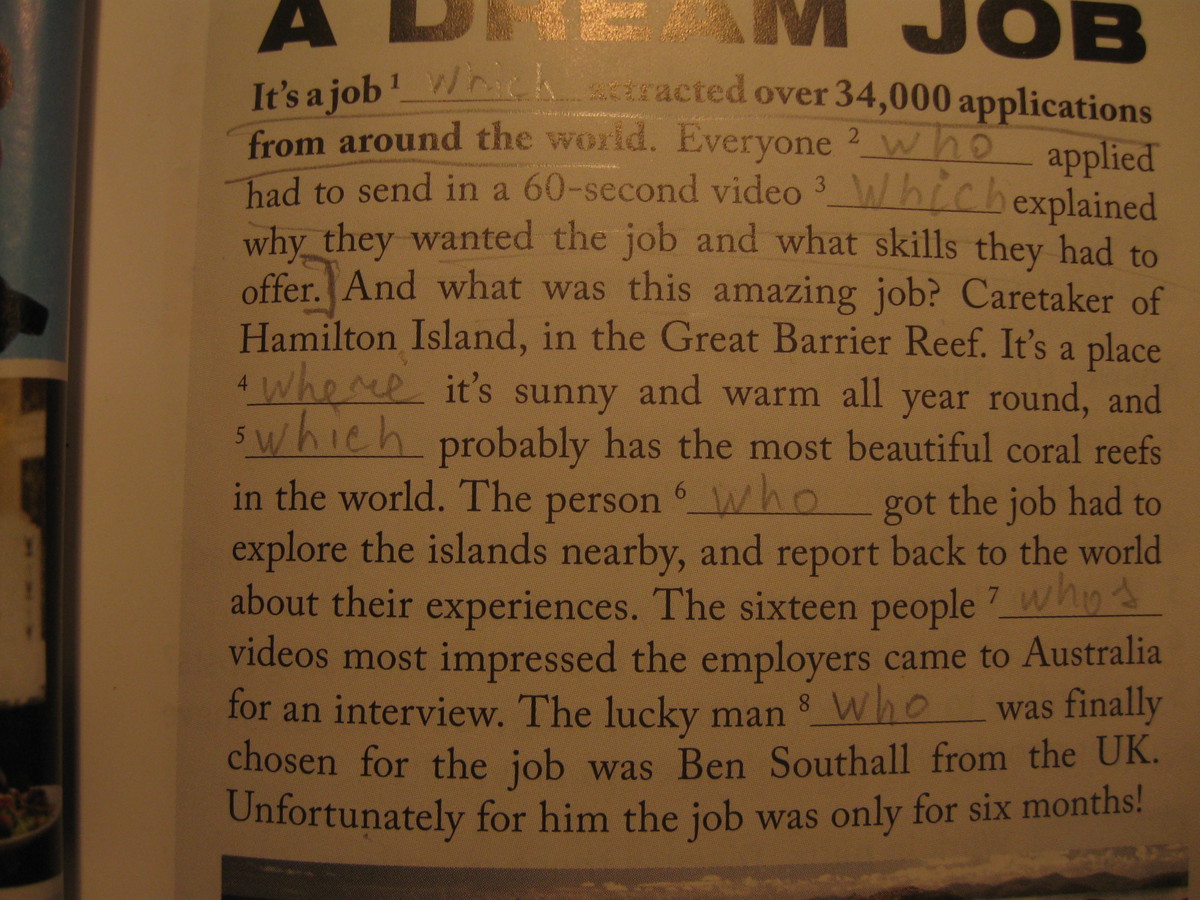 A DREAM JOB
It's a job ¹ which attracted over 34,000 applications
from around the world. Everyone ² who applied
had to send in a 60-second video ³ which explained
why they wanted the job and what skills they had to
offer.] And what was this amazing job? Caretaker of
Hamilton Island, in the Great Barrier Reef. It's a place
⁴ where it's sunny and warm all year round, and
⁵ which probably has the most beautiful coral reefs
in the world. The person ⁶ who got the job had to
explore the islands nearby, and report back to the world
about their experiences. The sixteen people ⁷ whos
videos most impressed the employers came to Australia
for an interview. The lucky man ⁸ who was finally
chosen for the job was Ben Southall from the UK.
Unfortunately for him the job was only for six months!